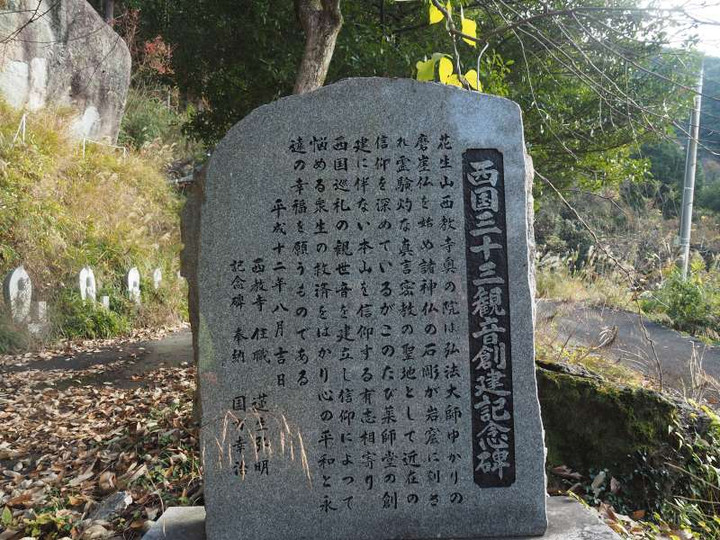 西国三十三観音創建記念碑
花生山西教寺奥の院は弘法大師ゆかりの
磨崖仏を始め諸神仏の石彫が岩窟に刻さ
れ霊験灼な真言密教の聖地として近在の
信仰を深めているがこのたび薬師堂の創
建に伴ない本山を信仰する有志相寄り
西国巡礼の観世音を建立し信仰によって
悩める衆生の救済をはかり心の平和と永
遠の幸福を願うものである
平成十二年八月吉日
西教寺 住職 蓮生弘明
記念碑 奉納 国方幸治